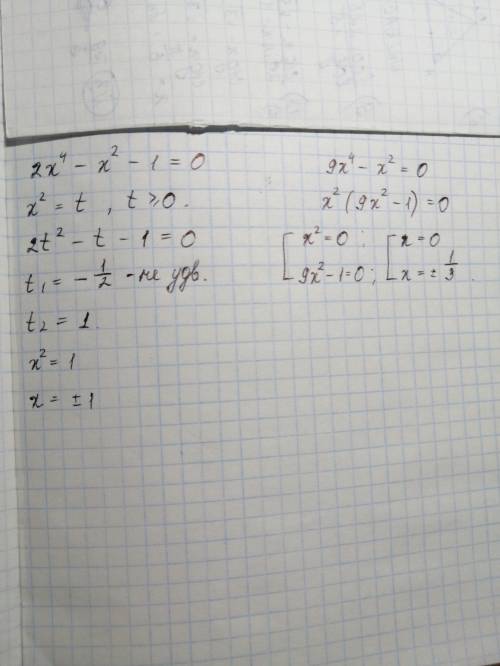 2x⁴ - x² - 1 = 0
x² = t , t ⩾ 0.
2t² - t - 1 = 0
t₁ = - 1/2 - не удв.
t₂ = 1.
x² = 1
x = ± 1
9x⁴ - x² = 0
x² (9x² - 1) = 0
[ x² = 0 ; [ x = 0
9x² - 1 = 0 ; x = ± 1/3 .